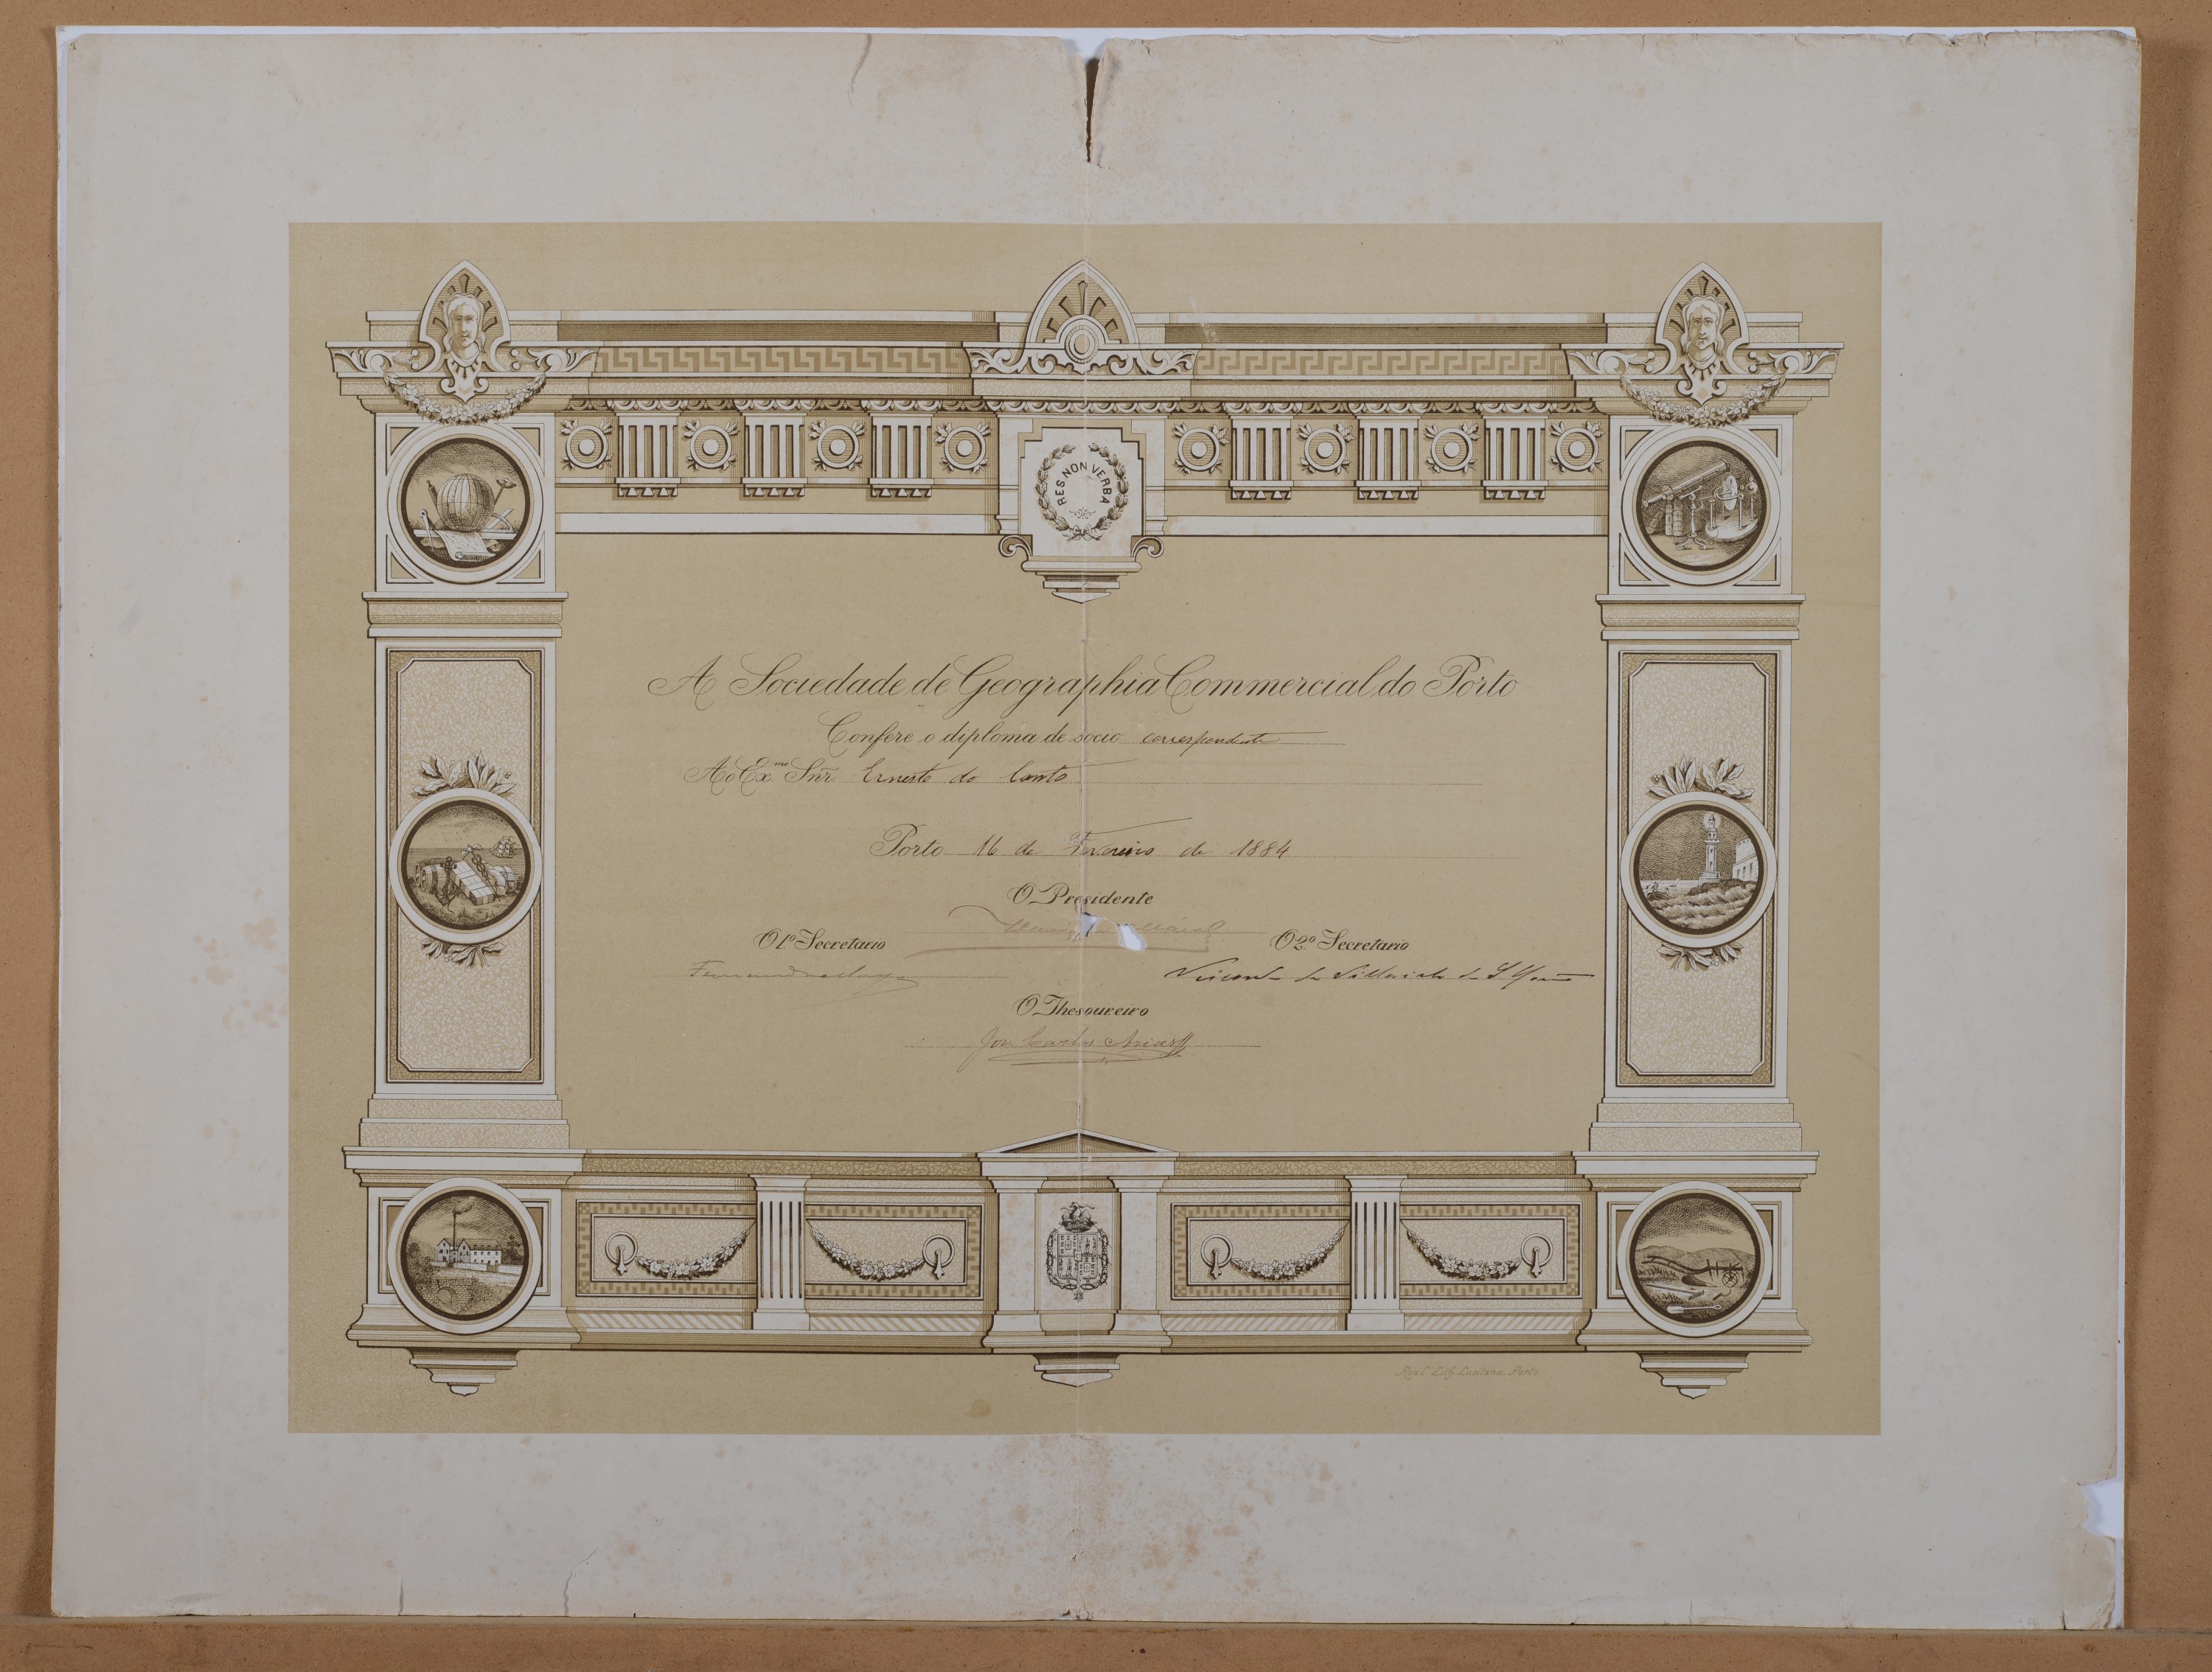 RES NON VERBA
A Sociedade de Geographia Commercial do Porto
Confere o diploma de socio correspondente
Ao Ex.mo Snr. Ernesto do Canto
Porto 16 de Fevereiro de 1884
O Presidente
O 1º Secretario
O 2º Secretario
Visconde de Villarinho de S. Romão
O Thesoureiro
José Carlos
Real Lith. Lusitana. Porto